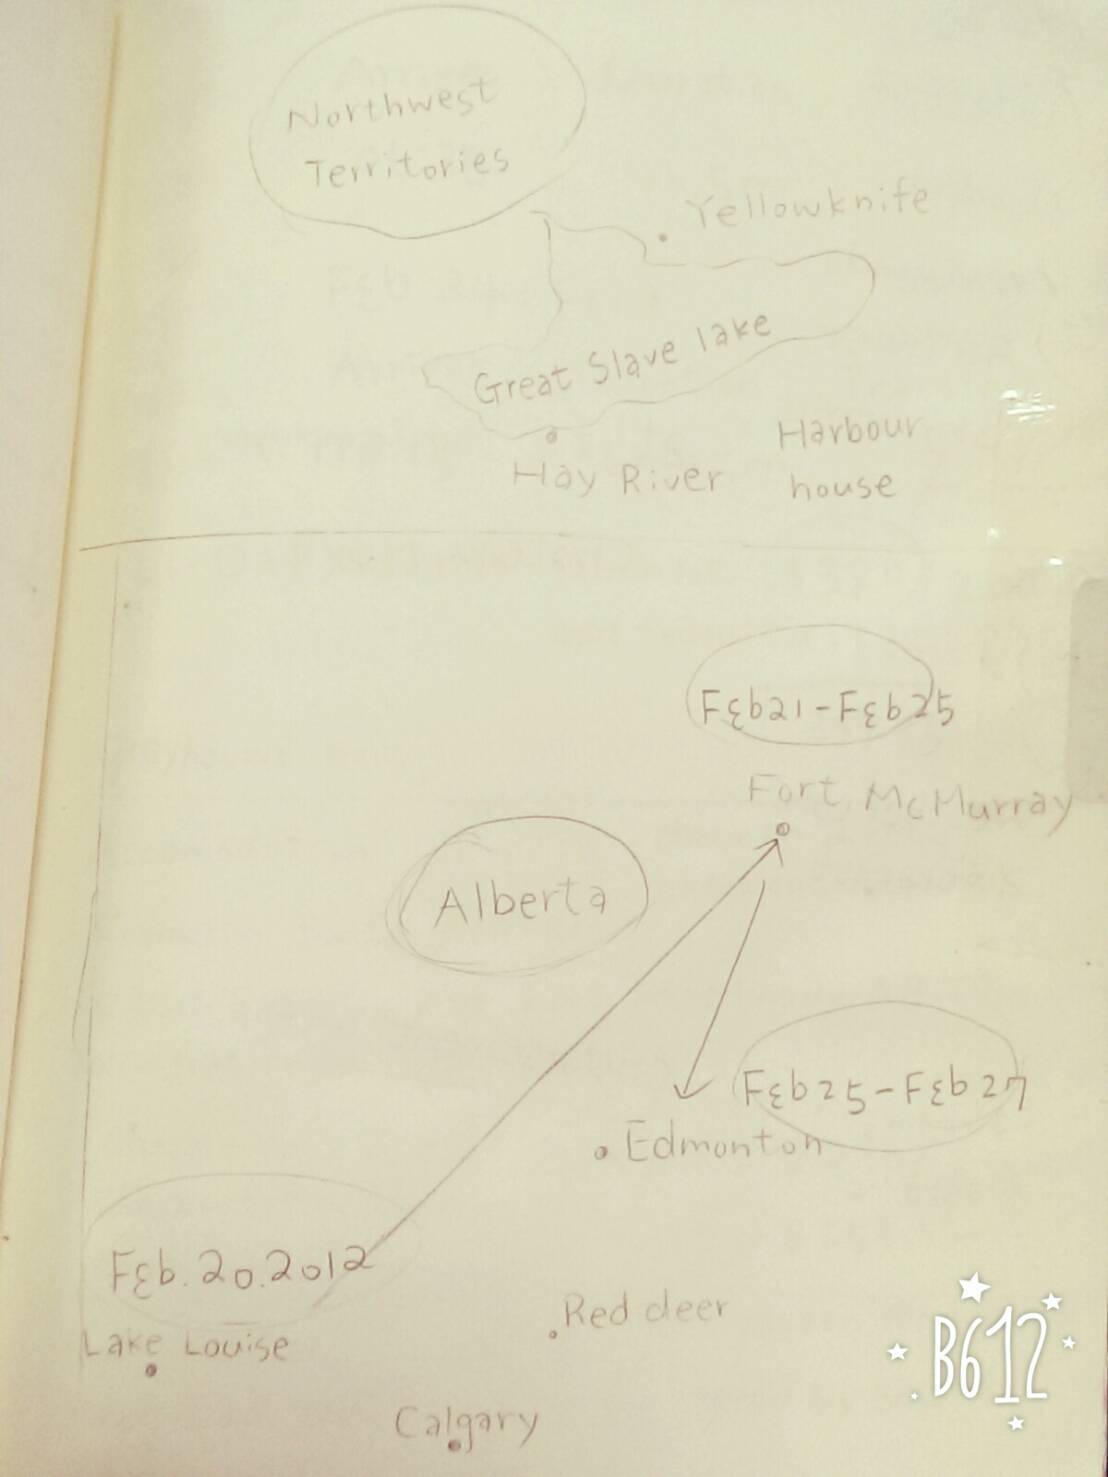 Northwest
Territories
Yellowknife
Great Slave lake
Harbour
house
Hay River
Feb21-Feb25
Fort McMurray
Alberta
Feb25-Feb27
Edmonton
Feb.20.2012
Lake Louise
Red deer
Calgary
B612